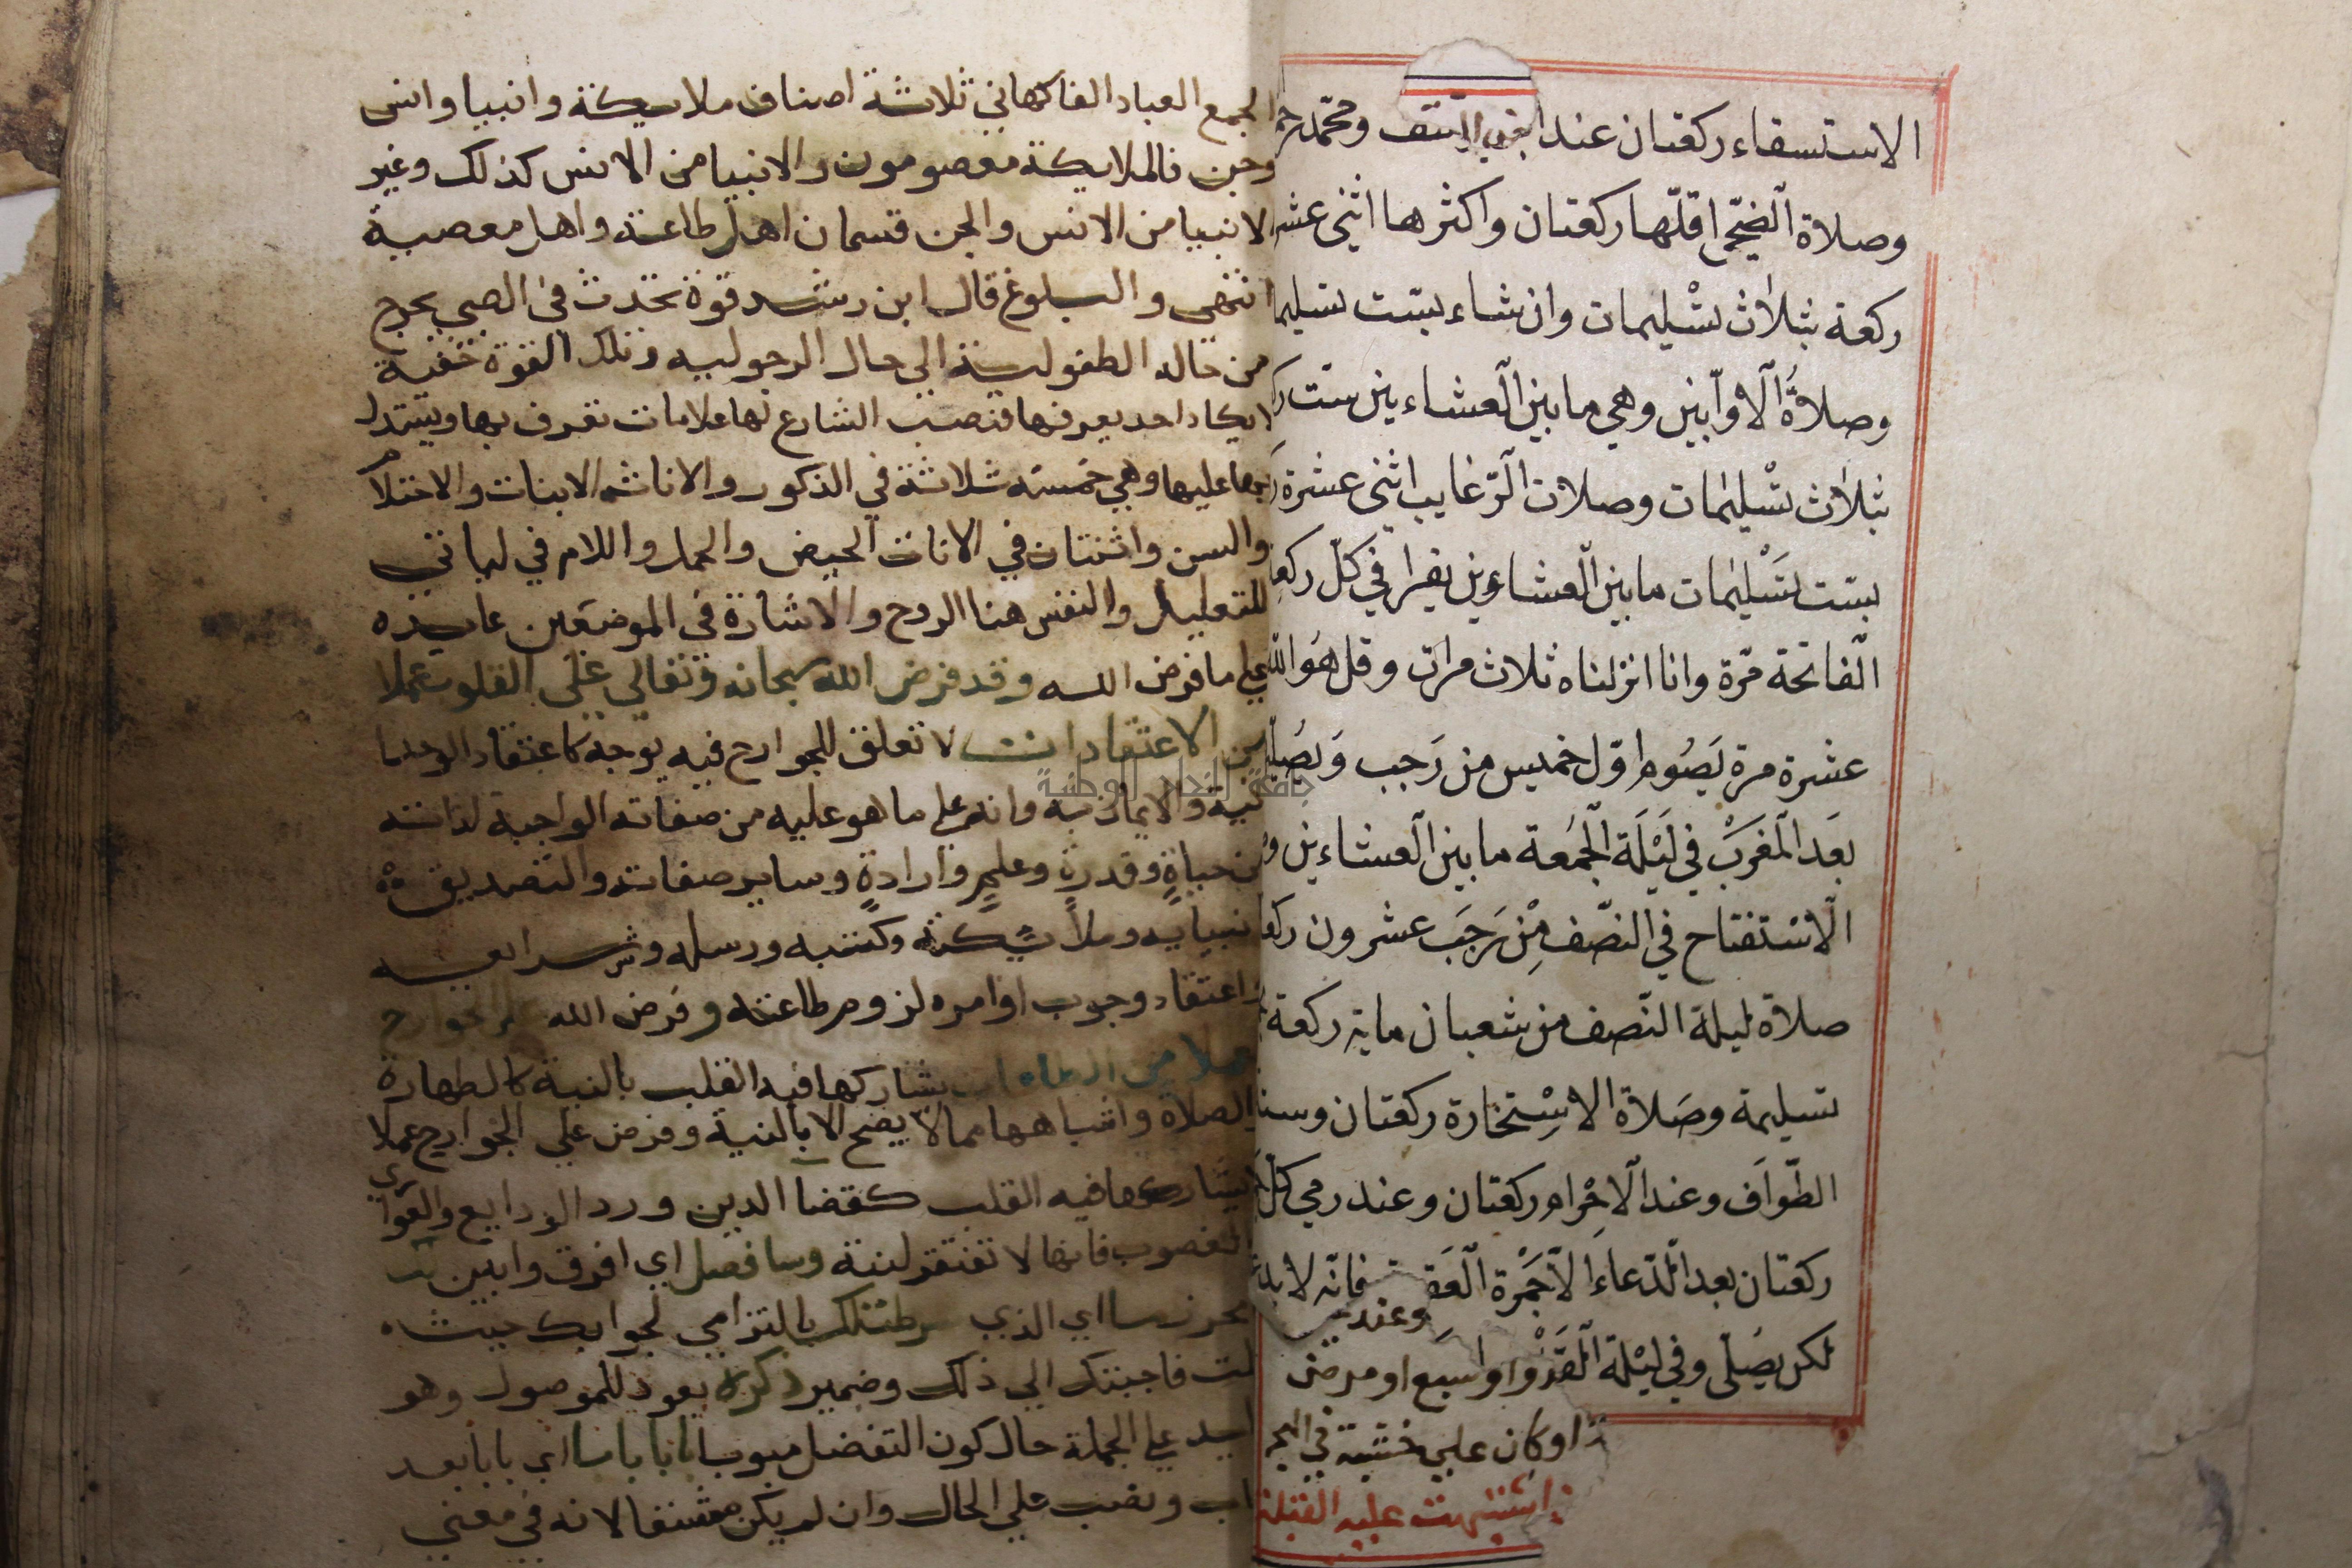 الاستسقاء ركعتان عند ابي يوسف ومحمد
وصلاة الضحى اقلها ركعتان واكثرها اثنى عشر
ركعة بثلاث تسليمات وان شاء بست
وصلاة الاوابين وهي ما بين العشاءين ست
بثلاث تسليمات وصلات الرغايب اثنى عشرة
بست تسليمات ما بين العشاءين يقرا في كل
الفاتحة مرة وانا انزلناه ثلاث مرات وقل هو الله
عشرة مرة يصوم اول خميس من رجب ويصلي
بعد المغرب في ليلة الجمعة ما بين العشاءين
الاستفتاح في النصف من رجب عشرون
صلاة ليلة النصف من شعبان ماية ركعة
تسليمة وصلاة الاستخارة ركعتان
الطواف وعند الاحرام ركعتان وعند رمي كل
ركعتان بعد الدعاء الا جمرة فانه لا
وعند
لكن يصلى وفي ليلة القدر او سبع او مرض
او كان على خشبة في البحر
اشتبهت عليه القبلة
الجمع العباد الفاكهاني ثلاثة اصناف ملايكة وانبيا وانس
وجن فالملايكة معصومون والانبيا من الانس كذلك وغير
الانبيا من الانس والجن قسمان اهل طاعة واهل معصية
انتهى والبلوغ قال ابن رشد قوة تحدث في الصبي يخرج
من حالة الطفولية الى حال الرجولية وتلك القوة خفية
لا يكاد احد يعرفها فنصب الشارع لها علامات تعرف بها ويستدل
بها عليها وهي خمسة ثلاثة في الذكور والاناث الانبات والاحتلام
والسن واثنتان في الاناث الحيض والحمل واللام في لياتي
للتعليل والنفس هنا الروح والاشارة في الموضعين عايدة
على ما فرض الله وقد فرض الله سبحانه وتعالى على القلوب عملا
من الاعتقادات لا تعلق للجوارح فيه بوجه كاعتقاد
والايمان به وانه على ما هو عليه من صفاته الواجبة لذاته
من حياة وقدرة وعلم وارادة وساير صفاته والتصديق
انبيايه وملايكته وكتبه ورسله وشرايعه
واعتقاد وجوب اوامره لزوم طاعته وفرض الله على الجوارح
عملا من الطاعات يشاركها فيه القلب بالنية كالطهارة
والصلاة واشباهها مما لا يصح الا بالنية وفرض على الجوارح عملا
لا يشاركها فيه القلب كقضا الدين ورد الودايع والعواري
والغصوب فانها لا تفتقر لنية وسافصل اي افرق وابين لك
اي الذي شرطت لك بالتزامي لجوابك حيث
سالت فاجبتك الى ذلك وضمير ذكره يعود للموصول وهو
عايد على الجملة حال كون التفضل مبوبا بابا بابا اي بابا بعد
باب ونصب على الحال وان لم يكن مشتقا لانه في معنى
جامعة النجاح الوطنية